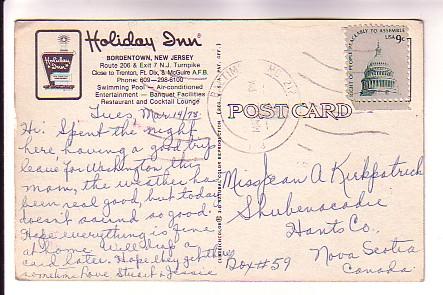 Holiday Inn
BORDENTOWN, NEW JERSEY
Route 206 & Exit 7 N.J. Turnpike
Close to Trenton, Ft. Dix, & McGuire A.F.B.
Phone: 609-298-6100
Swimming Pool — Air-conditioned
Entertainment — Banquet Facilities
Restaurant and Cocktail Lounge
Holiday Inn
RIGHT OF PEOPLE PEACEABLY TO ASSEMBLE
USA 9c
POST CARD
Tues Mar 14/78
Hi: Spent the night
here having a good trip
leave for Washington this
morn, the weather has
been real good but today
doesn't sound so good.
Hope everything is fine
at home. Will drop a
card later. Hope they get there
sometime Love Stuart & Jessie
Miss Jean A Kirkpatrick
Shubenacadie
Hants Co.,
Nova Scotia
Box #59
Canada.